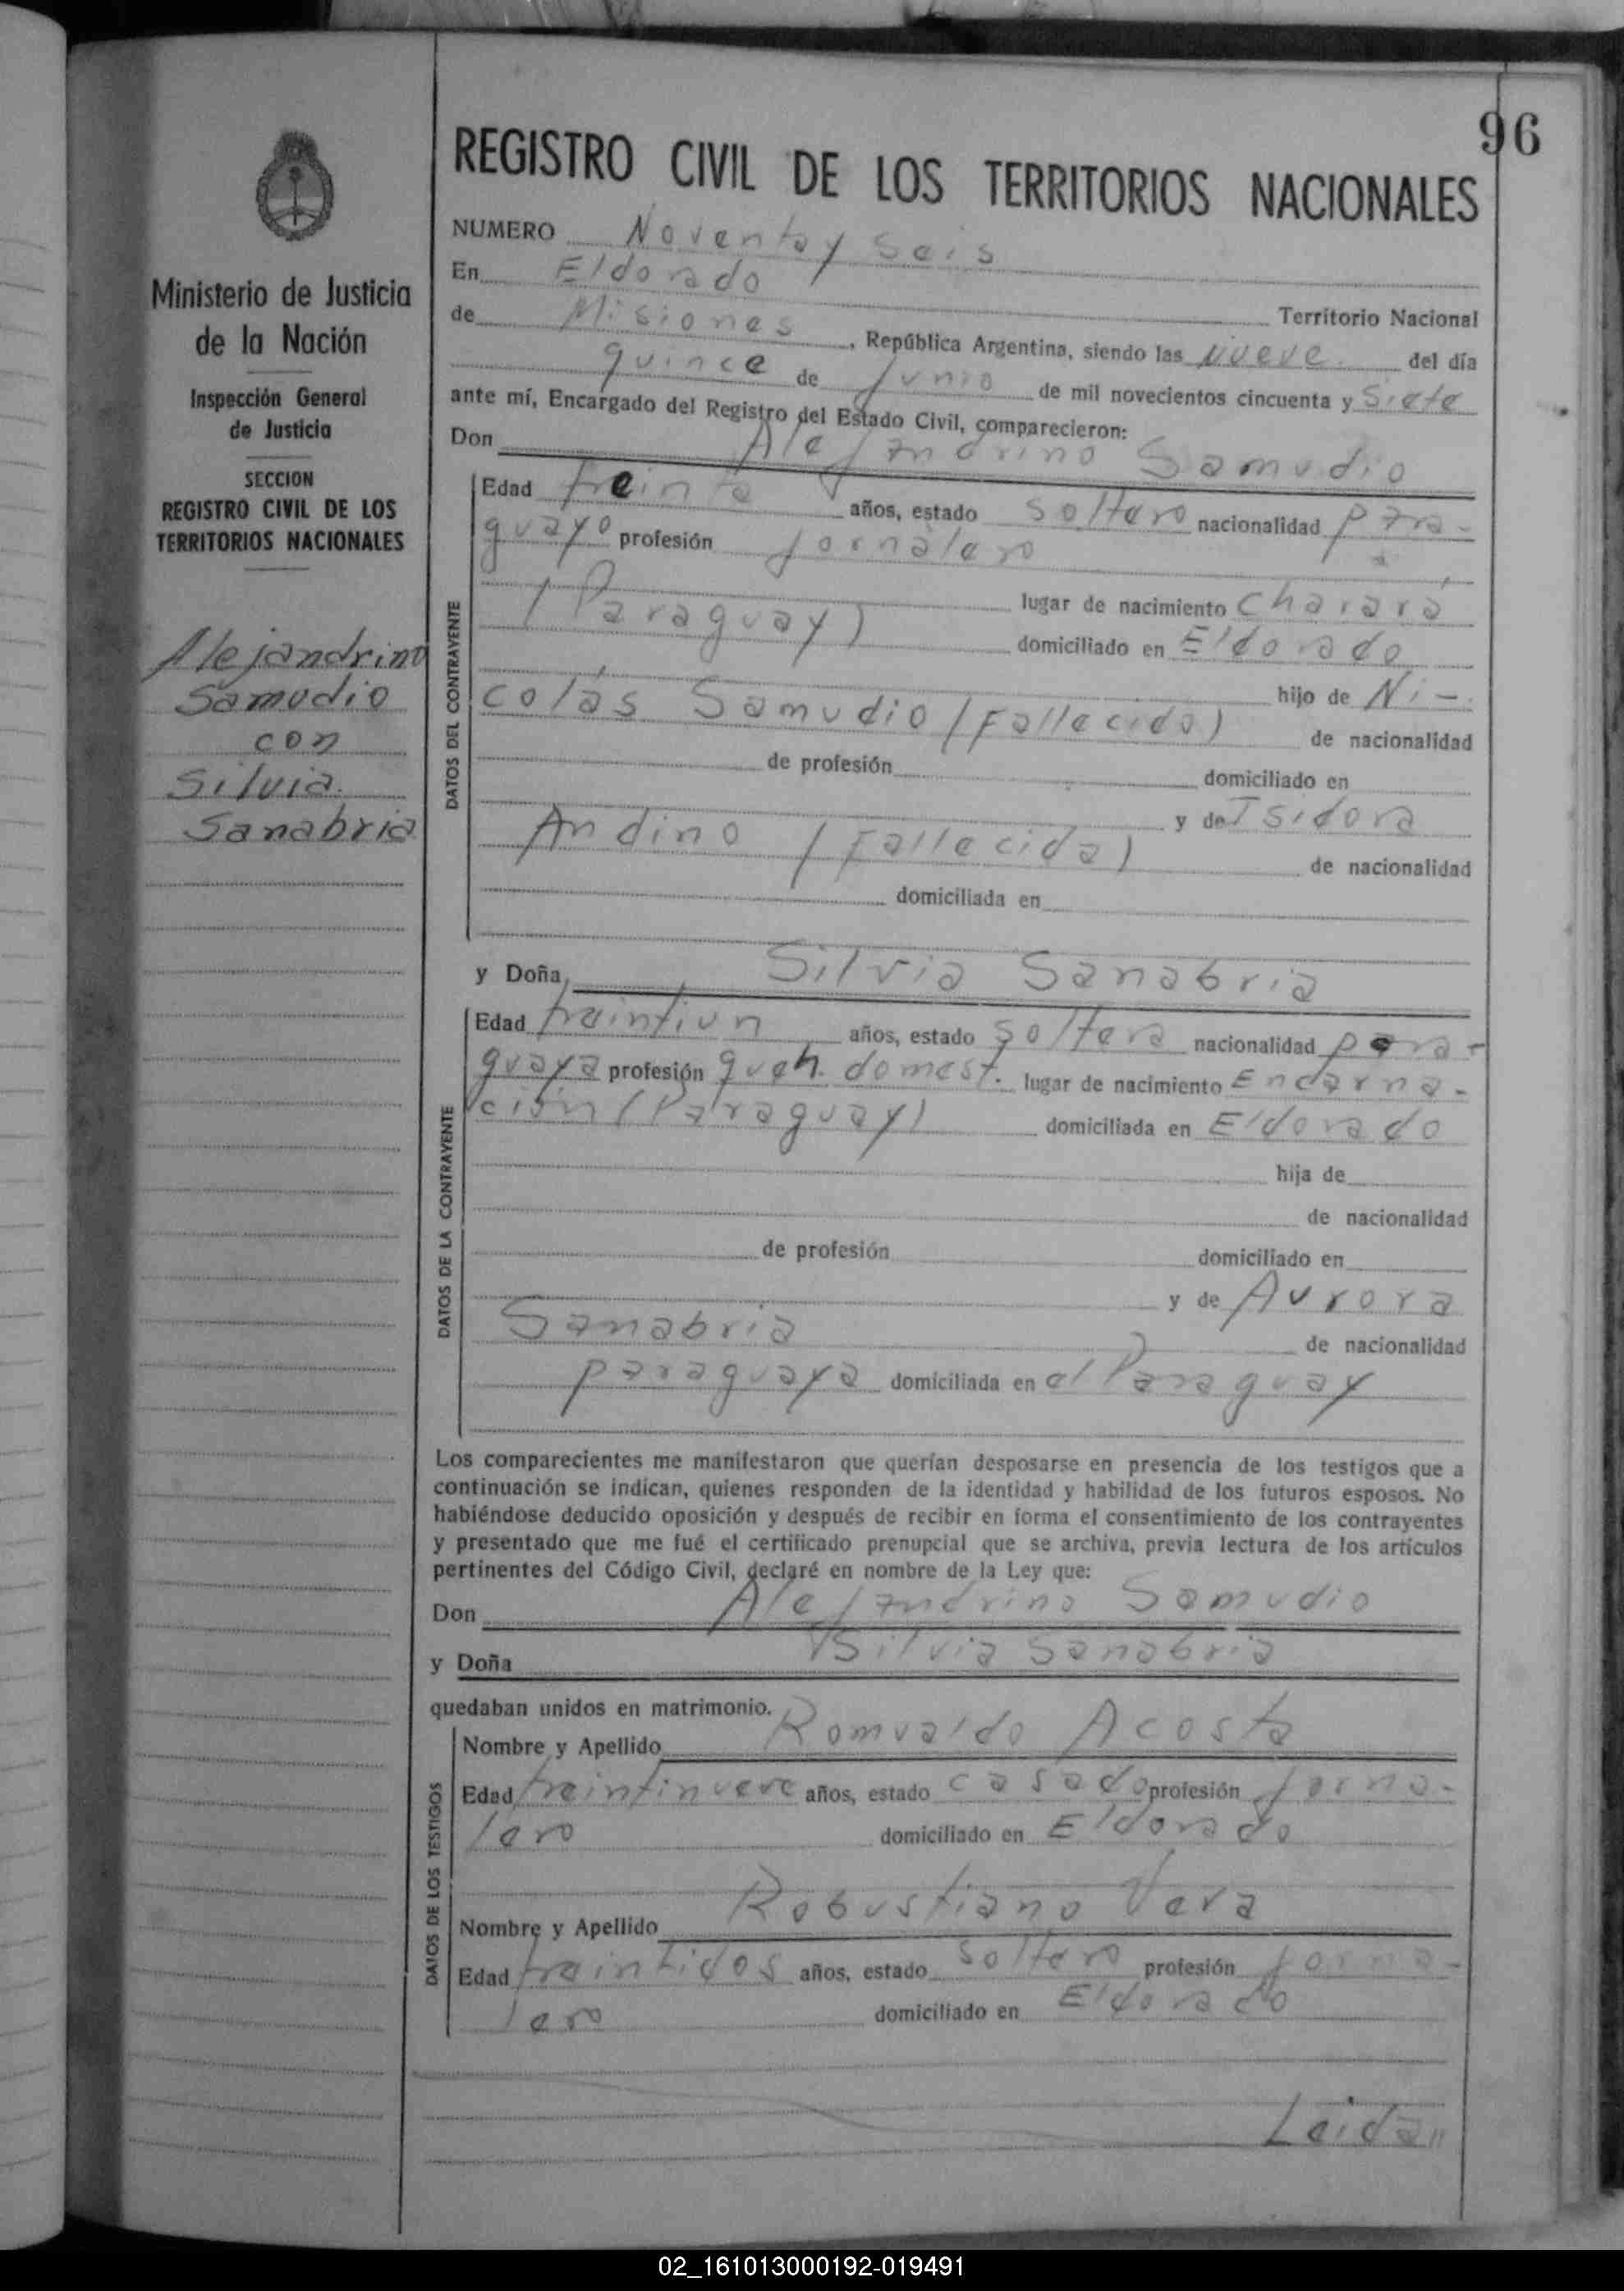 96
REGISTRO CIVIL DE LOS TERRITORIOS NACIONALES
Ministerio de Justicia
de la Nación
Inspección General
de Justicia
SECCION
REGISTRO CIVIL DE LOS
TERRITORIOS NACIONALES
Alejandrino
Samudio
con
Silvia
Sanabria
NUMERO Noventa y Seis
En Eldorado
Territorio Nacional
de Misiones, República Argentina, siendo las Nueve del día
quince de Junio de mil novecientos cincuenta y Siete
ante mí, Encargado del Registro del Estado Civil, comparecieron:
Don Alejandrino Samudio
DATOS DEL CONTRAYENTE
Edad treinta años, estado soltero nacionalidad para-
guayo profesión jornalero
lugar de nacimiento Charará
(Paraguay) domiciliado en Eldorado
hijo de Ni-
colás Samudio (Fallecido) de nacionalidad
de profesión domiciliado en
y de Isidora
Andino (Fallecida) de nacionalidad
domiciliada en
y Doña Silvia Sanabria
DATOS DE LA CONTRAYENTE
Edad treintiun años, estado soltera nacionalidad para-
guaya profesión queh. domest. lugar de nacimiento Encarna-
ción (Paraguay) domiciliada en Eldorado
hija de
de nacionalidad
de profesión domiciliado en
y de Aurora
Sanabria de nacionalidad
paraguaya domiciliada en el Paraguay
Los comparecientes me manifestaron que querían desposarse en presencia de los testigos que a
continuación se indican, quienes responden de la identidad y habilidad de los futuros esposos. No
habiéndose deducido oposición y después de recibir en forma el consentimiento de los contrayentes
y presentado que me fué el certificado prenupcial que se archiva, previa lectura de los artículos
pertinentes del Código Civil, declaré en nombre de la Ley que:
Don Alejandrino Samudio
y Doña Silvia Sanabria
quedaban unidos en matrimonio.
DATOS DE LOS TESTIGOS
Nombre y Apellido Romualdo Acosta
Edad treintinueve años, estado casado profesión jorna-
lero domiciliado en Eldorado
Nombre y Apellido Robustiano Vera
Edad treintidos años, estado soltero profesión jorna-
lero domiciliado en Eldorado
Leida"
02_161013000192-019491